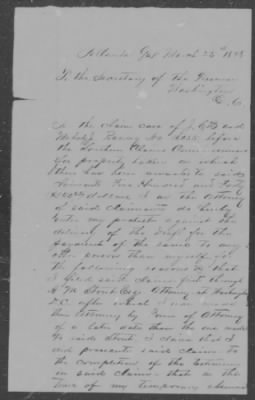 Atlanta Ga. March 25th 1878
To the Secretary of the Treasury
Washington
D.C.
In the claim case of J. C. and
before
the Southern Claims Commission
for property taken on which
there has been awarded said
claimants Five Hundred and Fifty
Dollars I am the Attorney
of said claimants do hereby
enter my protest against the
delivery of the draft for the
payment of the same to any
other person than myself for
the following reasons to wit
I filed said claim first through
Esqr Attorney at Washington
D.C. after which I was made
their Attorney by Power of Attorney
of a later date than the one made
to said Stout. I claim that I
and presented said claim to
the completion of the Evidence
on said claim that in the
time of my temporary absence